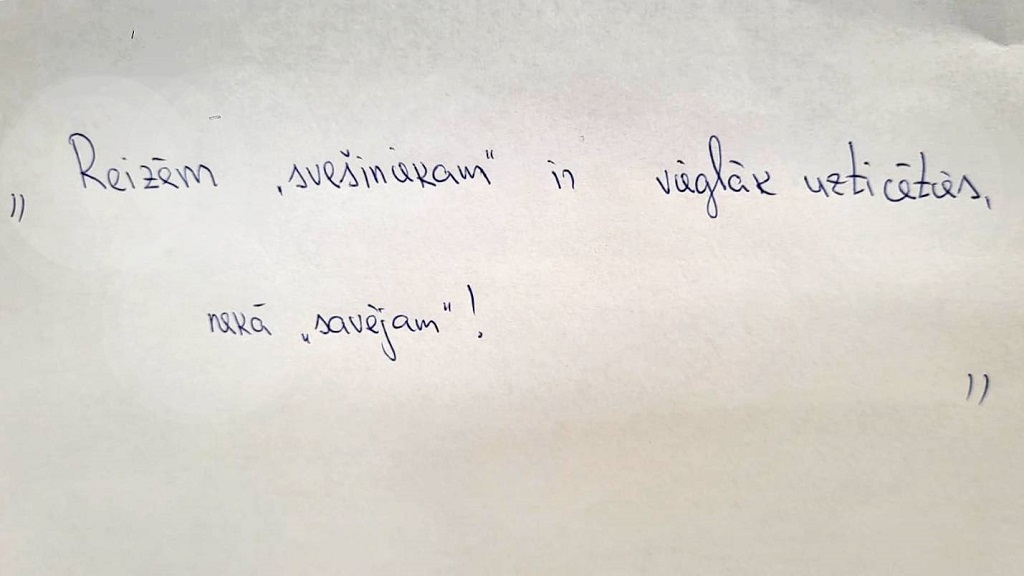 „ Reizēm „svešiniekam“ ir vieglāk uzticēties,
nekā „savējam“! ”